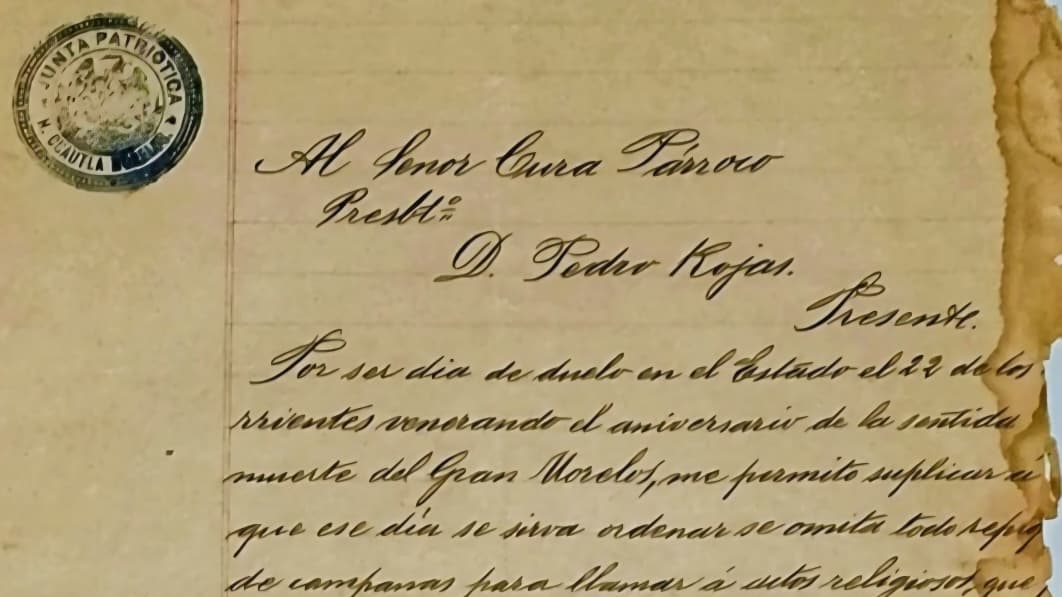 JUNTA PATRIOTICA
H. CUAUTLA
Al Senor Cura Párroco
Presbtº
D. Pedro Rojas.
Presente.
Por ser dia de duelo en el Estado el 22 de los
rrientes venerando el aniversario de la sentida
muerte del Gran Morelos, me permito suplicar á
que ese día se sirva ordenar se omita todo repiq
de campanas para llamar á actos religiosos, que